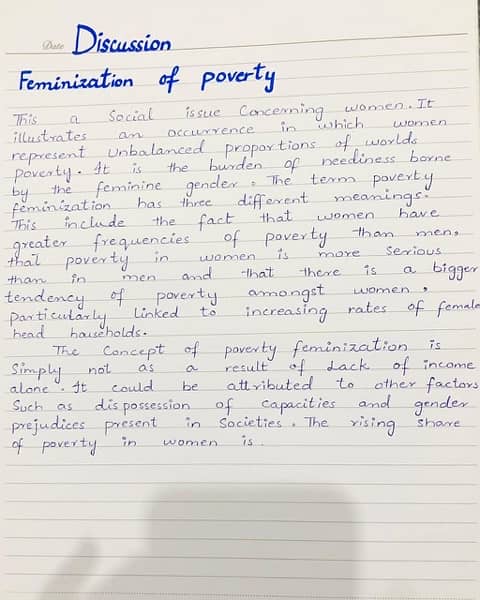 Date Discussion
Feminization of poverty
This a Social issue Concerning women. It
illustrates an occurrence in which women
represent unbalanced proportions of worlds
poverty. It is the burden of neediness borne
by the feminine gender. The term poverty
feminization has three different meanings.
This include the fact that women have
greater frequencies of poverty than men,
that poverty in women is more Serious
than in men and that there is a bigger
tendency of poverty amongst women,
particularly linked to increasing rates of female
head households.
The Concept of poverty feminization is
Simply not as a result of Lack of income
alone. It could be attributed to other factors
Such as dispossession of Capacities and gender
prejudices present in Societies. The rising Share
of poverty in women is